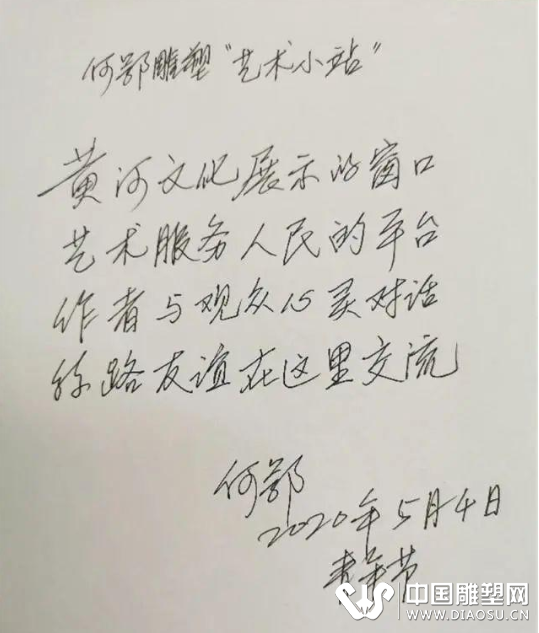 何鄂雕塑“艺术小站”
黄河文化展示的窗口
艺术服务人民的平台
作者与观众心灵对话
丝路友谊在这里交流
何鄂
2020年5月4日
青年节
中国雕塑网
WWW.DIAOSU.CN